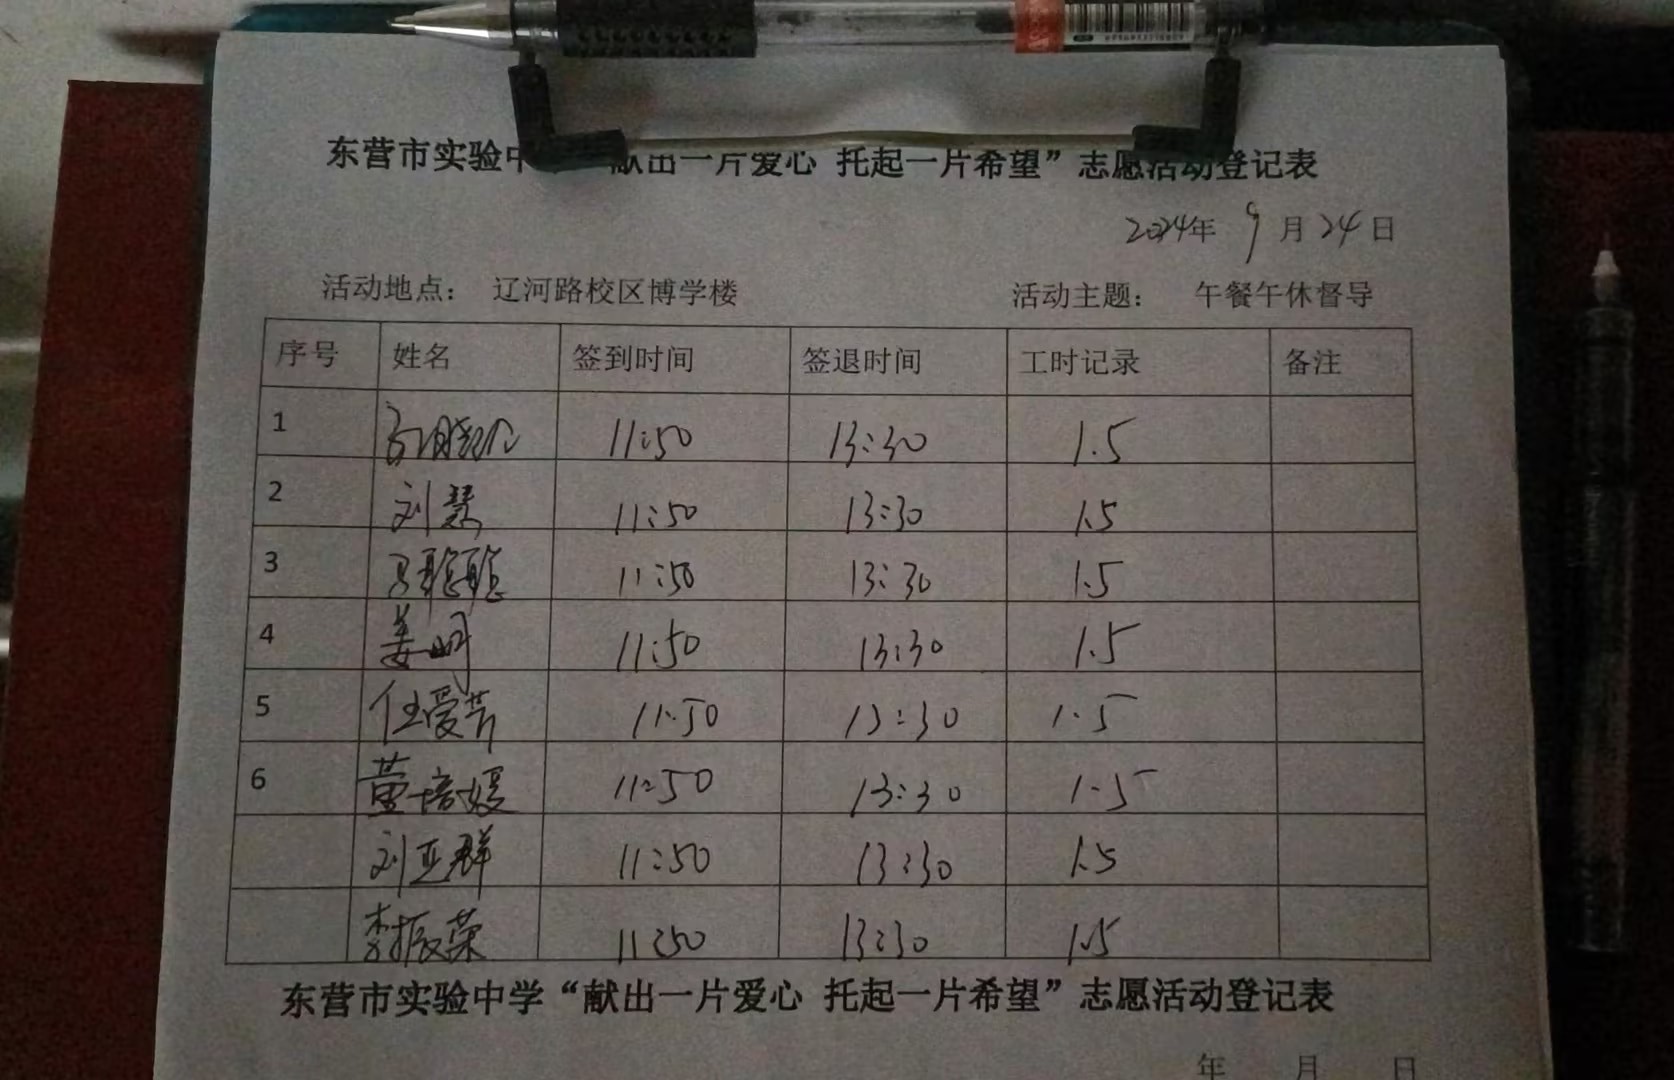 东营市实验中 献出一片爱心 托起一片希望”志愿活动登记表
2024年 9月24日
活动地点： 辽河路校区博学楼 活动主题： 午餐午休督导
序号 姓名 签到时间 签退时间 工时记录 备注
1 11:50 13:30 1.5
2 刘慧 11:50 13:30 1.5
3 马聪聪 11:50 13:30 1.5
4 姜明 11:50 13:30 1.5
5 任爱芳 11:50 13:30 1.5
6 董培媛 11:50 13:30 1.5
刘亚群 11:50 13:30 1.5
李振荣 11:50 13:30 1.5
东营市实验中学“献出一片爱心 托起一片希望”志愿活动登记表
年 月 日